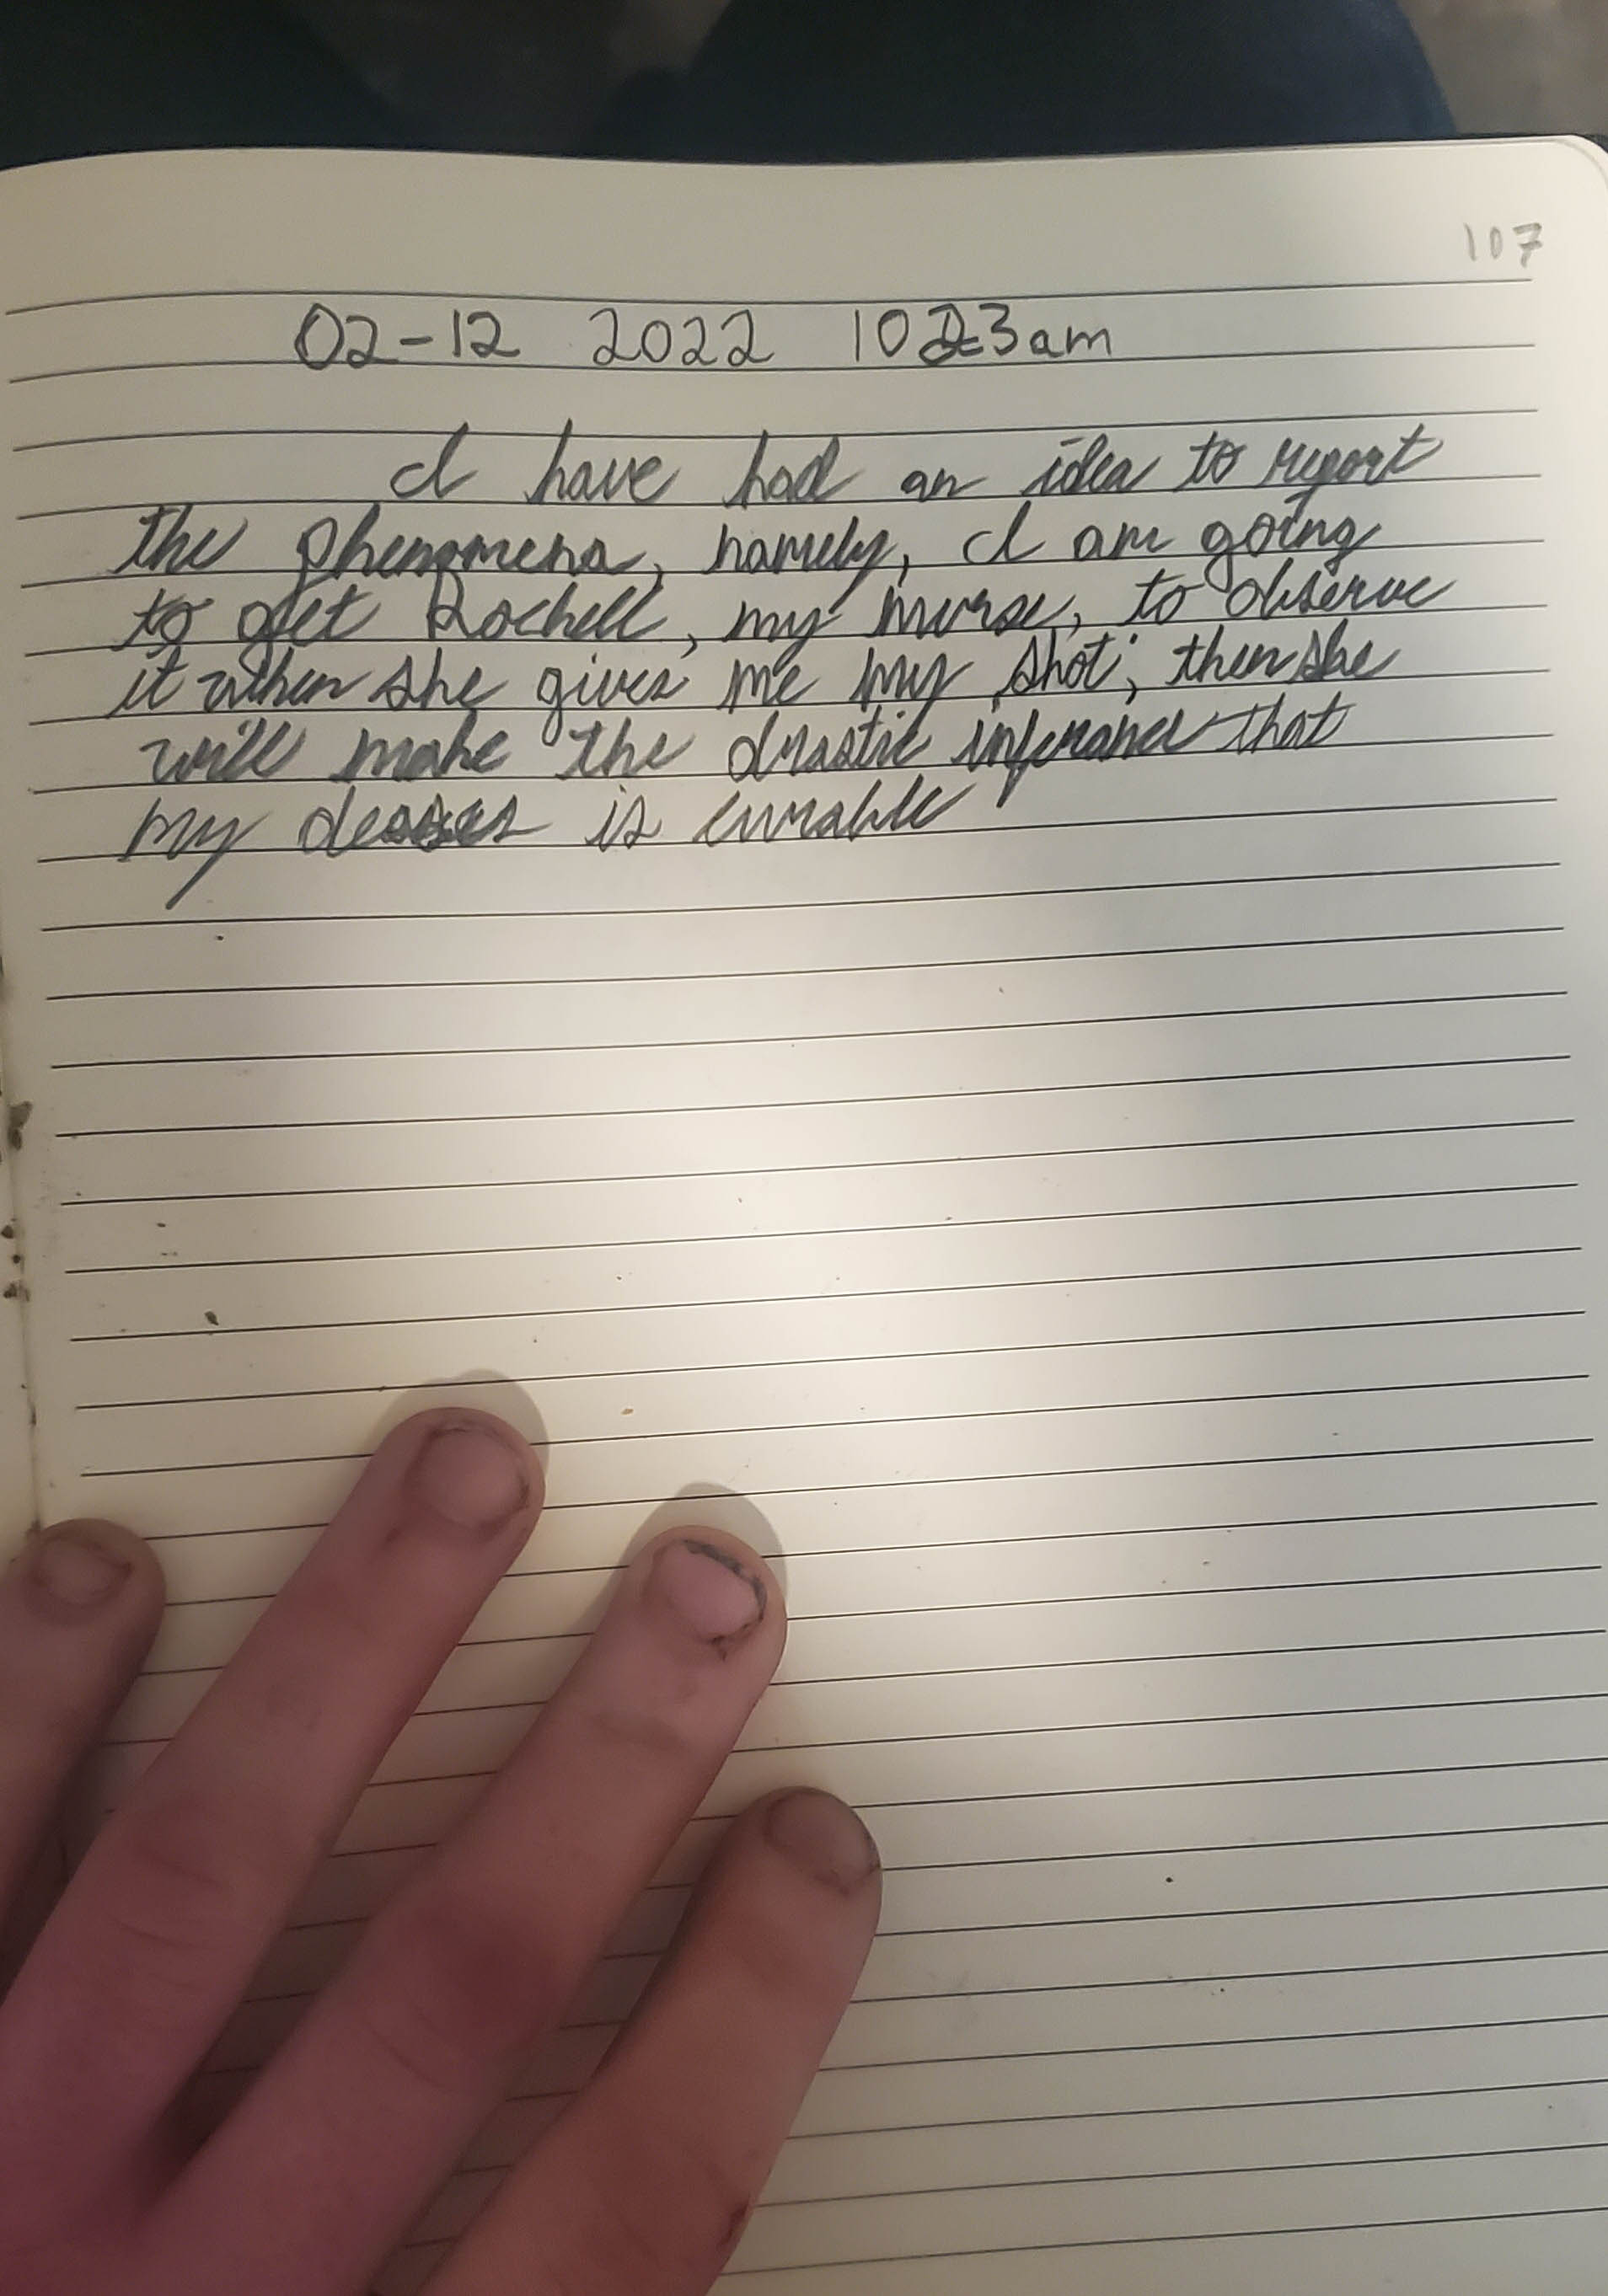 107
02-12 2022 10 23am
I have had an idea to report
the phenomena, namely, I am going
to get Rochell, my nurse, to observe
it when she gives me my shot; then she
will make the drastic inferance that
my is curable